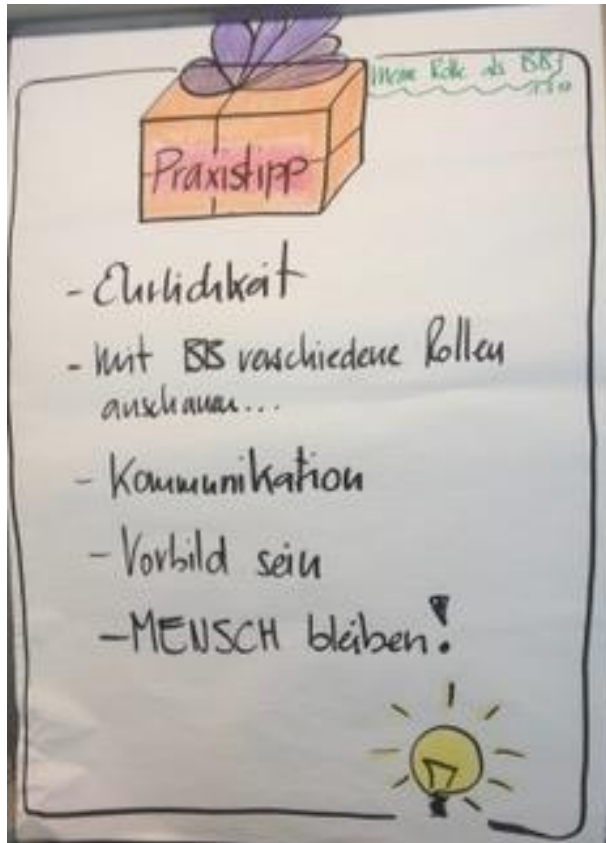 Meine Rolle als BB
Praxistipp
- Ehrlichkeit
- Mit BB verschiedene Rollen
anschauen...
- Kommunikation
- Vorbild sein
- MENSCH bleiben!